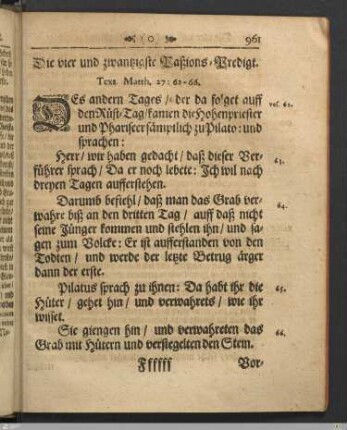 ❧ 0 ☙ 961
Die vier und zwantzigste Paßions-Predigt.
Text Matth. 27: 62-66.
DEs andern Tages / der da folget auff vers. 62.
den Rüst-Tag / kamen die Hohenpriester
und Phariseer sämptlich zu Pilato: und
sprachen:
Herr / wir haben gedacht / daß dieser Ver- 63.
führer sprach / Da er noch lebete: Ich wil nach
dreyen Tagen aufferstehen.
Darumb befiehl / daß man das Grab ver- 64.
wahre biß an den dritten Tag / auff daß nicht
seine Jünger kommen und stehlen ihn / und sa-
gen zum Volcke: Er ist aufferstanden von den
Todten / und werde der letzte Betrug ärger
dann der erste.
Pilatus sprach zu ihnen: Da habt ihr die 65.
Hüter / gehet hin / und verwahrets / wie ihr
wisset.
Sie giengen hin / und verwahreten das 66.
Grab mit Hütern und versiegelten den Stein.
Ffffff Vor-